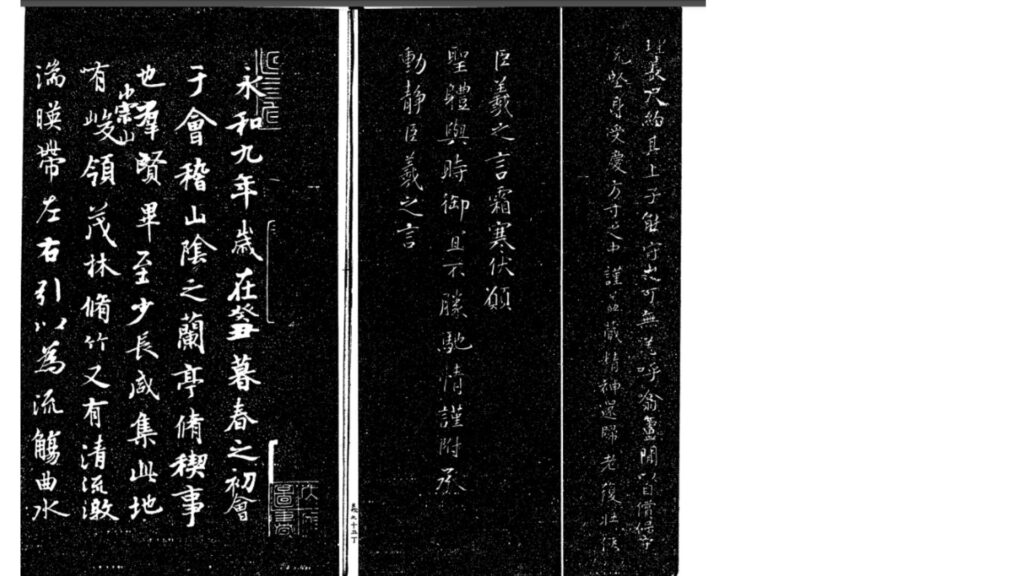 理長尺約其上子能守之可無恙呼翕廬間以自償保守
完堅身受慶方寸之中謹蓋藏精神還歸老復壯俠
臣羲之言霜寒伏願
聖體與時御且不勝馳情謹附承
動靜臣羲之言
永和九年歲在癸丑暮春之初會
于會稽山陰之蘭亭脩稧事
也羣賢畢至少長咸集此地
有崇山峻領茂林脩竹又有清流激
湍暎帶左右引以為流觴曲水